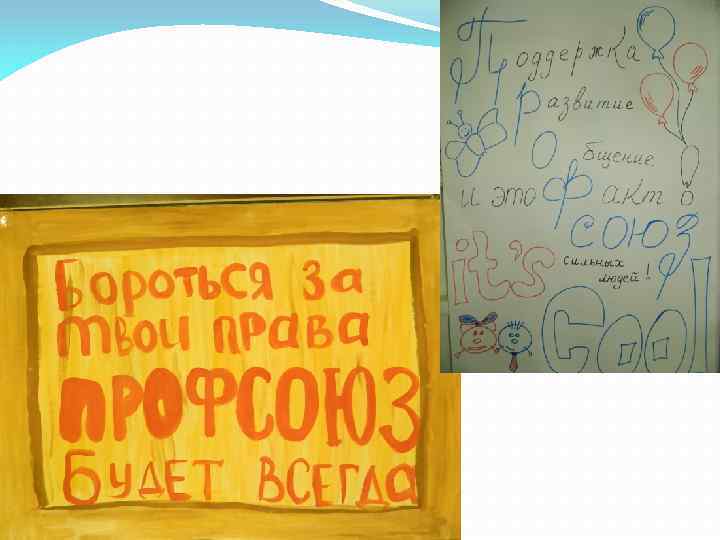 Бороться за
твои права
ПРОФСОЮЗ
будет всегда
Поддержка
Развитие
Общение
и это Факт
СОЮЗ
сильных
людей!
it's
cool